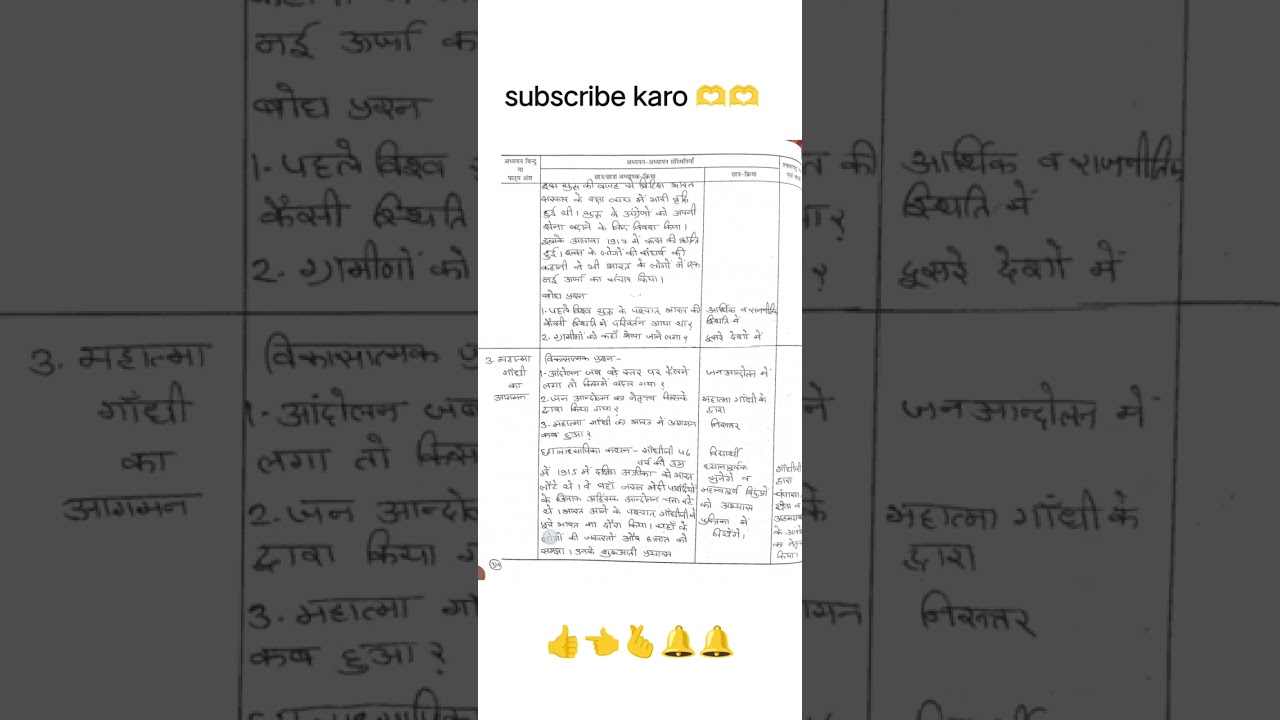 subscribe karo 🫶🫶
अध्ययन बिन्दु
या
पाठ्य अंश
अध्ययन-अध्यापन संस्थितियाँ
छात्र/छात्रा अध्यापक-क्रिया
छात्र-क्रिया
इस युद्ध की वजह से ब्रिटिश भारत
सरकार के रक्षा व्यय में भारी वृद्धि
हुई थी। युद्ध ने अंग्रेजो को अपनी
सेना बढ़ाने के लिए विवश किया।
इसके अलावा 1917 में रूस की क्रान्ति
हुई। रूस के लोगों की संघर्ष की
कहानी ने भी भारत के लोगों में एक
नई ऊर्जा का संचार किया।
बोध प्रश्न
1. पहले विश्व युद्ध के पश्चात भारत की
कैसी स्थिति में परिवर्तन आया था?
आर्थिक व राजनीतिक
स्थिति में
2. ग्रामीणों को कहाँ भेजा जाने लगा?
दूसरे देशों में
3. महात्मा
गाँधी
का
आगमन
विकासात्मक प्रश्न-
1- आंदोलन जब बड़े स्तर पर फैलने
लगा तो किसमें बदल गया?
जनआन्दोलन में
2. जन आन्दोलन का नेतृत्व किसके
द्वारा किया गया?
महात्मा गाँधी के
द्वारा
3. महात्मा गाँधी का भारत में आगमन
कब हुआ?
निरुत्तर
छात्राध्यापिका कथन- गाँधीजी 46
वर्ष की उम्र
में 1915 में दक्षिण अफ्रीका से भारत
लौटे थे। वे वहाँ नस्ल भेदी पाबंदियों
के खिलाफ अहिंसक आन्दोलन चला रहे
थे। भारत आने के पश्चात गाँधीजी ने
पूरे भारत का दौरा किया। यहाँ के
लोगों की जरूरतों और हालात को
समझा। उनके शुरुआती प्रयास
विद्यार्थी
ध्यानपूर्वक
सुनेंगे व
महत्वपूर्ण बिंदुओं
को अभ्यास
पुस्तिका में
लिखेंगे।
गाँधीजी
द्वारा
चंपारण,
खेड़ा व
अहमदाबाद
के
का नेतृत्व
किया।
👍👈🫰🔔🔔